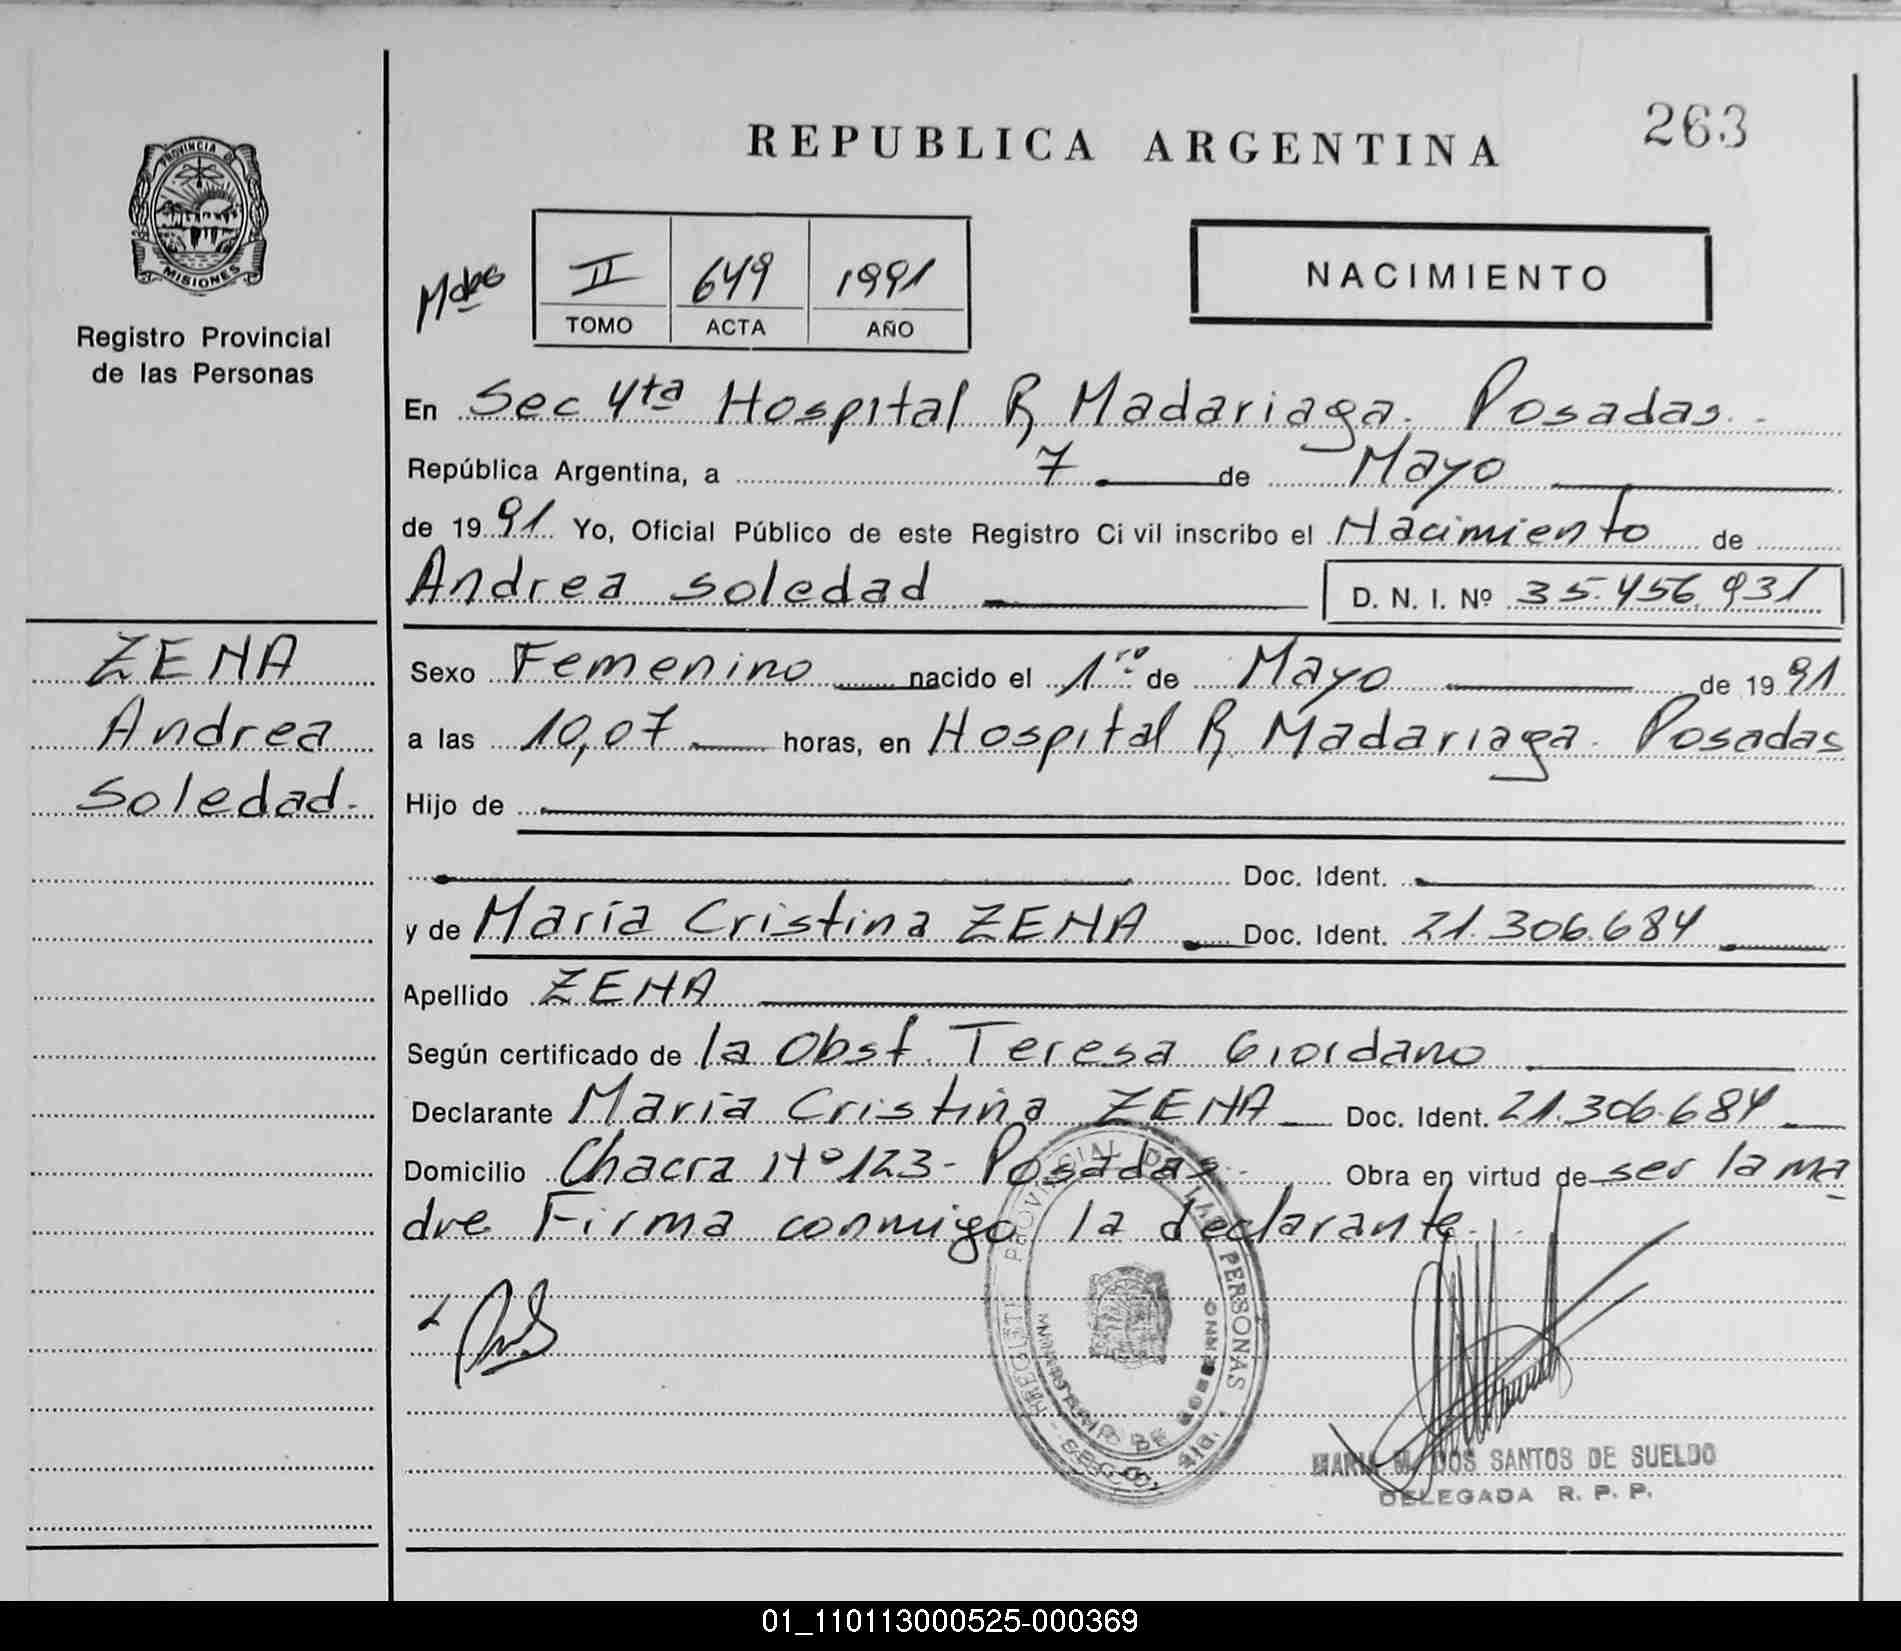 REPUBLICA ARGENTINA
263
PROVINCIA DE
MISIONES
Registro Provincial
de las Personas
II 649 1991
TOMO ACTA AÑO
NACIMIENTO
En Sec 4ta Hospital R Madariaga. Posadas.-
República Argentina, a 7 de Mayo
de 1991 Yo, Oficial Público de este Registro Civil inscribo el Nacimiento de
Andrea Soledad D. N. I. Nº 35.456.931
ZENA
Andrea
Soledad.-
Sexo Femenino nacido el 1ro de Mayo de 1991
a las 10,07 horas, en Hospital R Madariaga. Posadas
Hijo de
Doc. Ident.
y de María Cristina ZENA Doc. Ident. 21.306.684
Apellido ZENA
Según certificado de la Obst. Teresa Giordano
Declarante María Cristina ZENA Doc. Ident. 21.306.684
Domicilio Chacra Nº 123 - Posadas. Obra en virtud de ser la ma
dre Firma conmigo la declarante.
PROVINCIAL DE LAS PERSONAS
MARIA M. DOS SANTOS DE SUELDO
DELEGADA R. P. P.
01_110113000525-000369